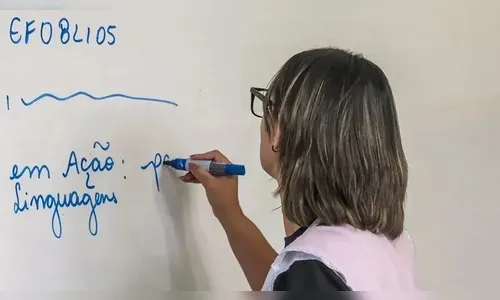 EF08LI05
em Ação: p
Linguagens